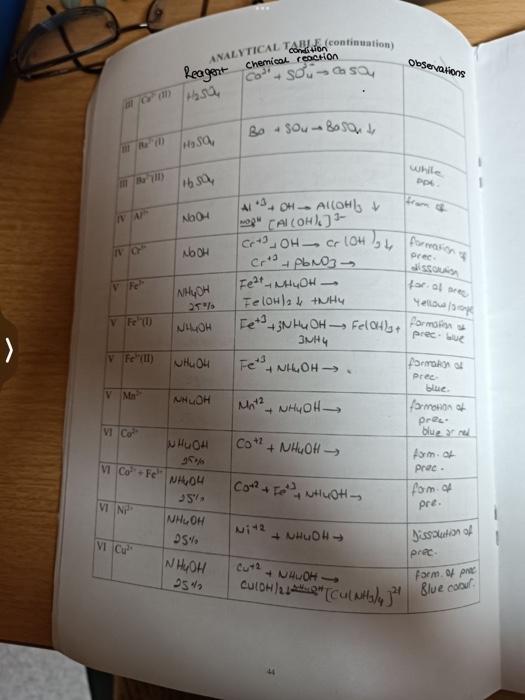 ANALYTICAL TABLE (continuation)
condition
Reagent chemical reaction observations
III Ca²⁺ (II) H₂SO₄ Ca²⁺ + SO₄²⁻ → CaSO₄
III Ba²⁺ (I) H₂SO₄ Ba + SO₄ → BaSO₄ ↓
III Ba²⁺ (II) H₂SO₄ white
ppt.
IV Al³⁺ NaOH Al⁺³ + OH → Al(OH)₃ ↓ from of
[Al(OH)₆]³⁻
IV Cr³⁺ NaOH Cr⁺³ + OH → Cr(OH)₃ ↓ formation of
Cr⁺³ + PbNO₃ → prec.
dissolution
V Fe²⁺ NH₄OH Fe²⁺ + NH₄OH → for. of prec
25% Fe(OH)₂ ↓ + NH₄ yellow/
V Fe³⁺(I) NH₄OH Fe⁺³ + 3NH₄OH → Fe(OH)₃ + formation of
3NH₄ prec. blue
V Fe³⁺(II) NH₄OH Fe⁺³ + NH₄OH → formation of
prec.
blue.
V Mn²⁺ NH₄OH Mn⁺² + NH₄OH → formation of
prec.
blue or red
VI Co²⁺ NH₄OH Co⁺² + NH₄OH → form. of
25% prec.
VI Co²⁺ + Fe³⁺ NH₄OH Co⁺² + Fe⁺³ + NH₄OH → form. of
25% pre.
VI Ni²⁺ NH₄OH Ni⁺² + NH₄OH → Dissolution of
25% prec.
VI Cu²⁺ NH₄OH Cu⁺² + NH₄OH → form. of prec
25% Cu(OH)₂ ↓ NH₄OH→ [Cu(NH₃)₄]²⁺ Blue colour.
44